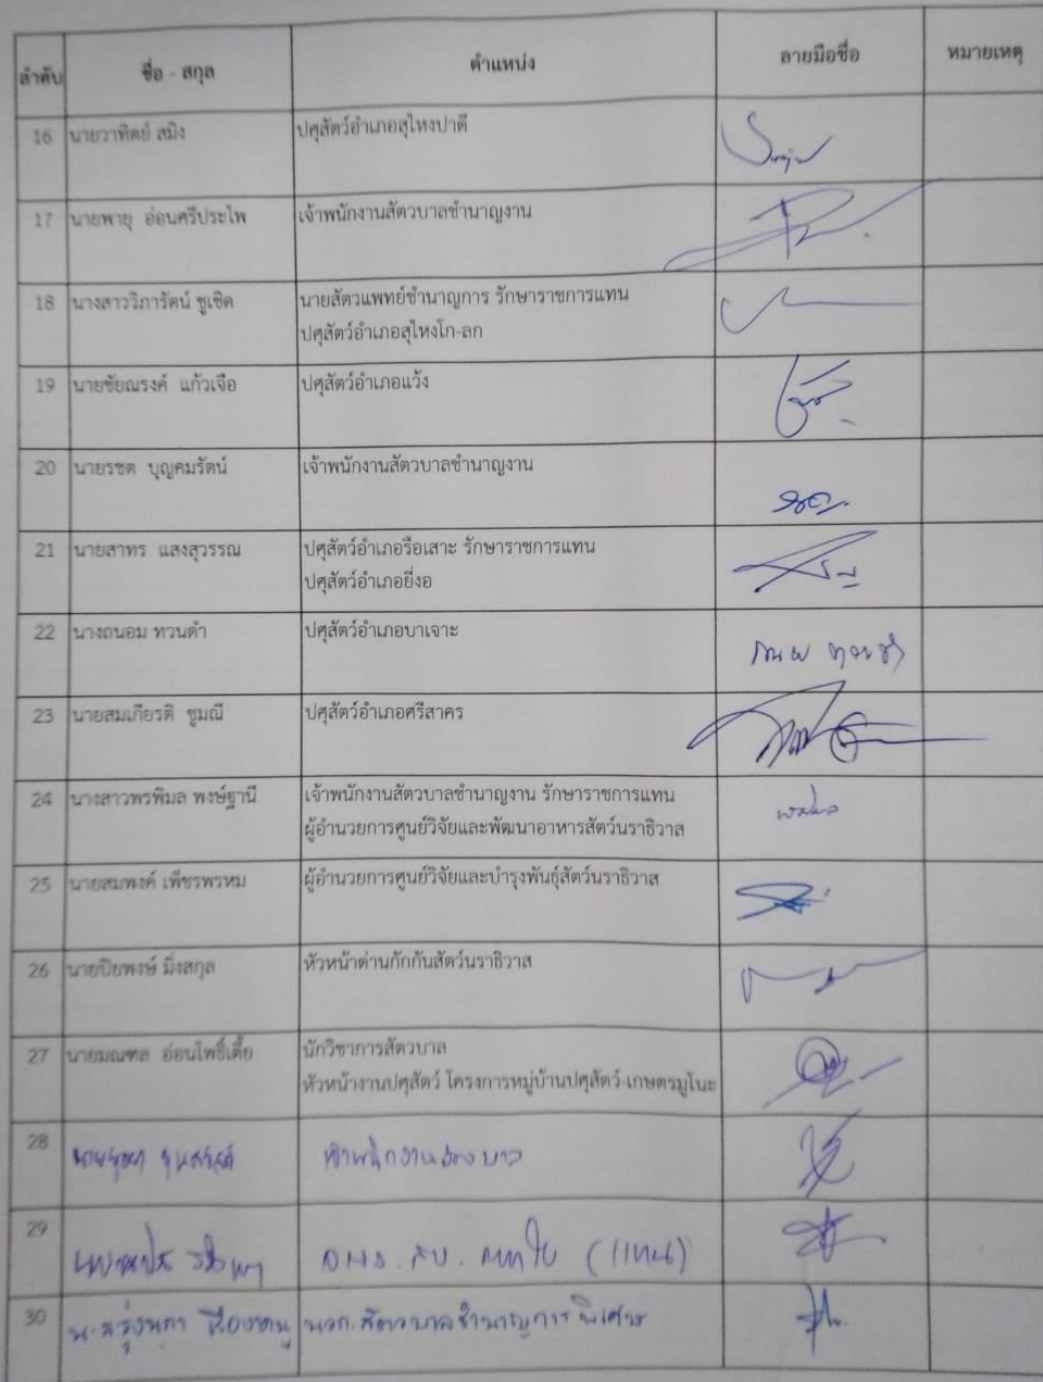 ลำดับ ชื่อ - สกุล ตำแหน่ง ลายมือชื่อ หมายเหตุ
16 นายวาทิตย์ สมิง ปศุสัตว์อำเภอสุไหงปาดี
17 นายพายุ อ่อนศรีประไพ เจ้าพนักงานสัตวบาลชำนาญงาน
18 นางสาววิภารัตน์ ชูเชิด นายสัตวแพทย์ชำนาญการ รักษาราชการแทน
ปศุสัตว์อำเภอสุไหงโก-ลก
19 นายชัยณรงค์ แก้วเจือ ปศุสัตว์อำเภอแว้ง
20 นายรชต บุญคมรัตน์ เจ้าพนักงานสัตวบาลชำนาญงาน
21 นายสาทร แสงสุวรรณ ปศุสัตว์อำเภอรือเสาะ รักษาราชการแทน
ปศุสัตว์อำเภอยี่งอ
22 นางถนอม ทวนดำ ปศุสัตว์อำเภอบาเจาะ
23 นายสมเกียรติ ชูมณี ปศุสัตว์อำเภอศรีสาคร
24 นางสาวพรพิมล พงษ์ฐานี เจ้าพนักงานสัตวบาลชำนาญงาน รักษาราชการแทน
ผู้อำนวยการศูนย์วิจัยและพัฒนาอาหารสัตว์นราธิวาส
25 นายสมพงค์ เพ็ชรพรหม ผู้อำนวยการศูนย์วิจัยและบำรุงพันธุ์สัตว์นราธิวาส
26 นายปิยพงษ์ มิ่งสกุล หัวหน้าด่านกักกันสัตว์นราธิวาส
27 นายมณฑล อ่อนโพธิ์เตี้ย นักวิชาการสัตวบาล
หัวหน้างานปศุสัตว์ โครงการหมู่บ้านปศุสัตว์-เกษตรมูโนะ
28
29 (แทน)
30 สัตวบาลชำนาญการพิเศษ